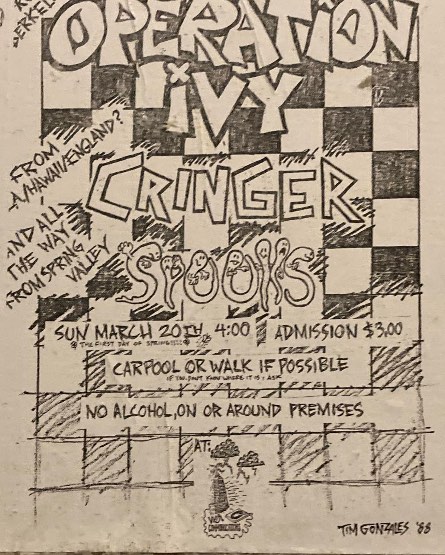 OPERATION
IVY
FROM
A/HAWAII/ENGLAND?
CRINGER
AND ALL
THE WAY
FROM SPRING
VALLEY
SPOOKS
SUN MARCH 20TH, 4:00
ADMISSION $3.00
@ THE FIRST DAY OF SPRING!!!
CARPOOL OR WALK IF POSSIBLE
IF YOU DON'T KNOW WHERE IT IS: ASK
NO ALCOHOL, ON OR AROUND PREMISES
AT:
TIM GONZALES '88